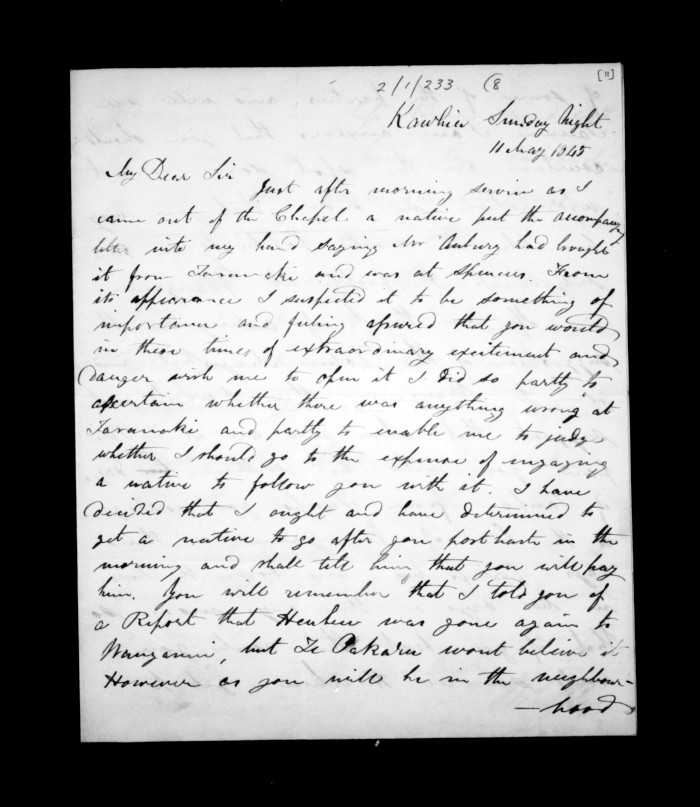 [11]
2/1/233 (8
Kawhia Sunday Night
11 May 1845
My Dear Sir
Just after morning service as I
came out of the Chapel a native put the accompanying
letter into my hand saying Mr Aubury had brought
it from Taranaki and was at Spencers. From
its appearance I suspected it to be something of
importance and feeling assured that you would
in these times of extraordinary excitement and
danger wish me to open it I did so partly to
ascertain whether there was anything wrong at
Taranaki and partly to enable me to judge
whether I should go to the expense of engaging
a native to follow you with it. I have
decided that I ought and have determined to
get a native to go after you post haste in the
morning and shall tell him that you will pay
him. You will remember that I told you of
a Report that Heuheu was gone again to
Wanganui, but Te Pakaru wont believe it
However as you will be in the neighbour-
-hood